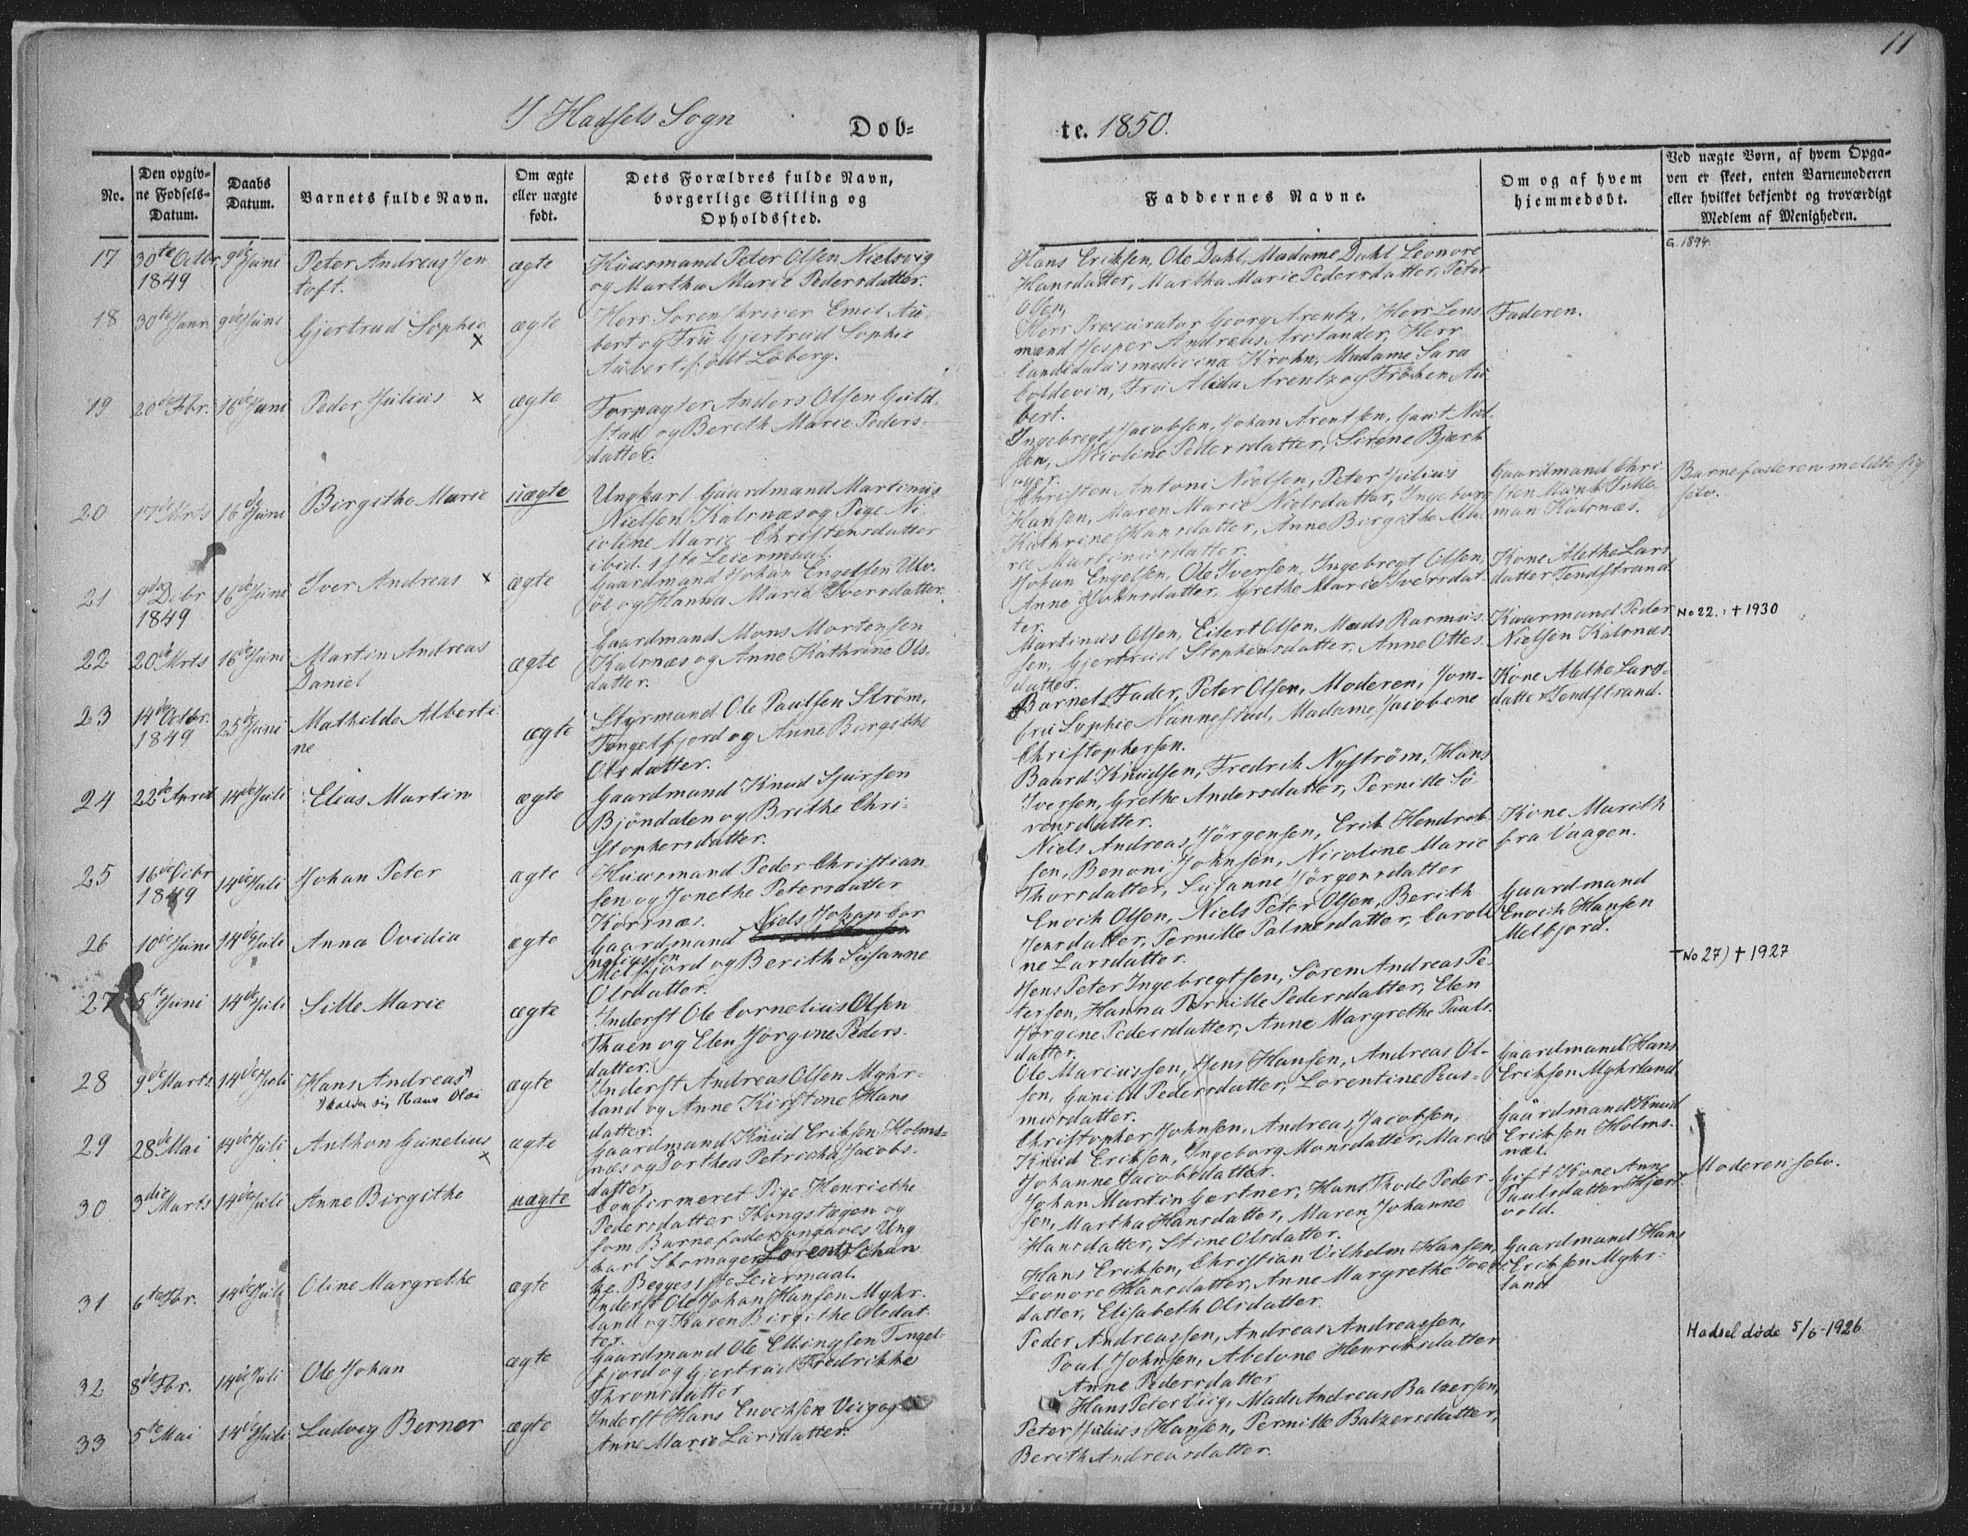 11
I Hadsels Sogn
Dob=
te. 1850.
No.
Den opgiv-
ne Fødsels-
Datum.
Daabs
Datum.
Barnets fulde Navn.
Om ægte
eller uægte
født.
Dets Forældres fulde Navn,
borgerlige Stilling og
Opholdssted.
Faddernes Navne.
Om og af hvem
hjemmedøbt.
Ved uægte Børn, af hvem Opga-
ven er skeet, enten Barnemoderen
eller hvilket bekjendt og troværdigt
Medlem af Menigheden.
17
30te Octbr
1849
9de Juni
Peter Andreas Jen
toft.
ægte
Huusmand Peter Olsen Nielsvig
og Martha Marie Pedersdatter.
Hans Eriksen, Ole Dahl, Madame Dahl Leonore
Hansdatter, Martha Marie Pedersdatter, Peter
Olsen,
G. 1894.
18
30te Janr
9de Juni
Gjertrud Sophie
x
ægte
Herr Sorenskriver Emil Au-
bert og Frü Gjertrud Sophie
Aubert, født Loberg.
Herr Procurator Georg Arentz, Herr Lens
mand Jesper Andreas Arctander, Herr
Candidatus medicina Krohn, Madame Sara
Coldevin, Frü Alida Arentz og Frøken Au
bert.
Faderen.
19
20de Fbr.
16de Juni
Peder Julius x
ægte
Forpagter Anders Olsen Guld-
stad og Berith Marie Peders-
datter.
Ingebregt Jacobsen, Johan Arentsen, Gaut Niel-
sen, Nicoline Pedersdatter, Sirene Bjerk
20
17de Mrts
16de Juni
Birgithe Marie
uægte
Ungkarl Gaardmand Martinus
Nielsen Kalsnæs og Pige Ni-
coline Marie Christensdatter
ibid. 1ste Leiermaal.
Christen Antoni Nielsen, Peter Julius
Hansen, Maren Marie Nielsdatter, Ingeborg
Kathrine Hansdatter, Anne Birgithe Ma-
rie Martinusdatter.
Gaardmand Chri-
man Kalsnæs.
Barnefaderen meldte sig
selv.
21
9de Debr
1849
16de Juni
Iver Andreas x
ægte
Gaardmand Johan Engelsen Ulv-
öe og Hanna Marie Iversdatter.
Johan Engelsen, Ole Iversen, Ingebregt Olsen,
Anne Johnsdatter, Grethe Marie Iversdat-
ter.
Kone Alethe Lars
datter Sandstrand
22
20de Mrts
16de Juni
Martin Andreas
Daniel
ægte
Gaardmand Mons Mortensen
Kalsnæs og Anne Kathrine Ols-
datter.
Martinus Olsen, Eilert Olsen, Mads Rasmus-
sen, Gjertrud Stephensdatter, Anne Ottes-
datter.
Huusmand Peder
Nielsen Kalsnæs.
No 22: † 1930
23
14de Octbr.
1849
25de Juni
Mathilde Alberti
ne
ægte
Styrmand Ole Paulsen Ström,
Tengelfjord og Anne Birgithe
Olsdatter.
Barnets Fader, Peter Olsen, Moderen, Jom-
fru Sophie Nannestad, Madame Jacobine
Christophersen.
Kone Alethe Lars-
datter Sandstrand.
24
22de April
14de Juli
Elias Martin
ægte
Gaardmand Knud Sjursen
Bjöndalen og Brithe Chri-
stophersdatter.
Baard Knudsen, Fredrik Nyström, Hans
Iversen, Grethe Andersdatter, Pernille Sö-
rensdatter.
25
16de Octbr
1849
14de Juli
Johan Peter
ægte
Huusmand Peder Christian
sen og Jonethe Petersdatter
Korsnæs.
Niels Andreas Jörgensen, Erik Hendrik-
sen, Benoni Johnsen, Nicoline Marie
Thorsdatter, Susanne Jörgensdatter
Kone Marith
fra Vaagen.
26
10de Juni
14de Juli
Anna Ovidia
ægte
Gaardmand Niels Johan Cor
neliussen
Melfjord og Berith Susanne
Olsdatter.
Enoch Olsen, Niels Peter Olsen, Berith
Jensdatter, Pernille Palmesdatter, Caroli
ne Larsdatter.
Gaardmand
Enoch Hansen
Melfjord.
27
5te Juni
14de Juli
Sille Marie
ægte
Inderst Ole Cornelius Olsen
Thuen og Elen Jörgine Peders-
datter.
Jens Peter Ingebregtsen, Sören Andreas Pe-
tersen, Hanna Pernille Pedersdatter, Elen
Jörgine Pedersdatter, Anne Margrethe Pauls-
datter.
No 27) † 1927
28
9de Marts
14de Juli
Hans Andreas
kalder sig Hans Olai
ægte
Inderst Andreas Olsen Myhr-
land og Anne Kirstine Hans
datter.
Ole Marcussen, Jens Hansen, Andreas Ol-
sen, Gunild Pedersdatter, Lorentine Ras-
musdatter.
Gaardmand Hans
Eriksen Myhrland
29
28de Mai
14de Juli
Anthon Gunelius
x
ægte
Gaardmand Knud Eriksen Holms-
næs og Dorthea Petricka Jacobs-
datter.
Christopher Johnsen, Andreas Jacobsen,
Knud Eriksen, Ingeborg Monsdatter, Maria
Johanne Jacobsdatter.
Gaardmand Knud
Eriksen Holms-
næs.
30
3die Marts
14de Juli
Anne Birgithe
uægte
Confirmeret Pige Henriethe
Pedersdatter Kongstegen og
som Barnefader opgaves Ung
karl Skomager Lorents Johan
he Begges 1ste Leiermaal.
Johan Martin Gertner, Hans Thode Peder-
sen, Martha Hansdatter, Maren Johanne
Hansdatter, Stine Olsdatter.
Gift Kone Anne
Paulsdatter Hjert
vold.
Moderen selv.
31
6te Fbr.
14de Juli
Oline Margrethe
ægte
Inderst Ole Johan Hansen Myhr-
land og Karen Birgithe Olsdat
ter.
Hans Eriksen, Christian Vilhelm Hansen,
Leonore Hansdatter, Anne Margrethe Ivers
datter, Elisabeth Olsdatter.
Gaardmand Hans
Eriksen Myhr-
land
32
8de Fbr.
14de Juli
Ole Johan
ægte
Gaardmand Ole Ellingsen Tengel-
fjord og Gjertrud Fredrikke
Thronsdatter
Peder Andreassen, Andreas Andreassen,
Poul Johnsen, Abelone Henriksdatter
Anne Pedersdatter
Hadsel døde 5/6-1926
33
5te Mai
14de Juli
Ludvig Berner
ægte
Inderst Hans Enochsen Viig og
Anne Marie Larsdatter.
Hans Peter Viig, Mads Andreas Balzersen,
Peter Julius Hansen, Pernille Balzersdatter,
Berith Andreasdatter.